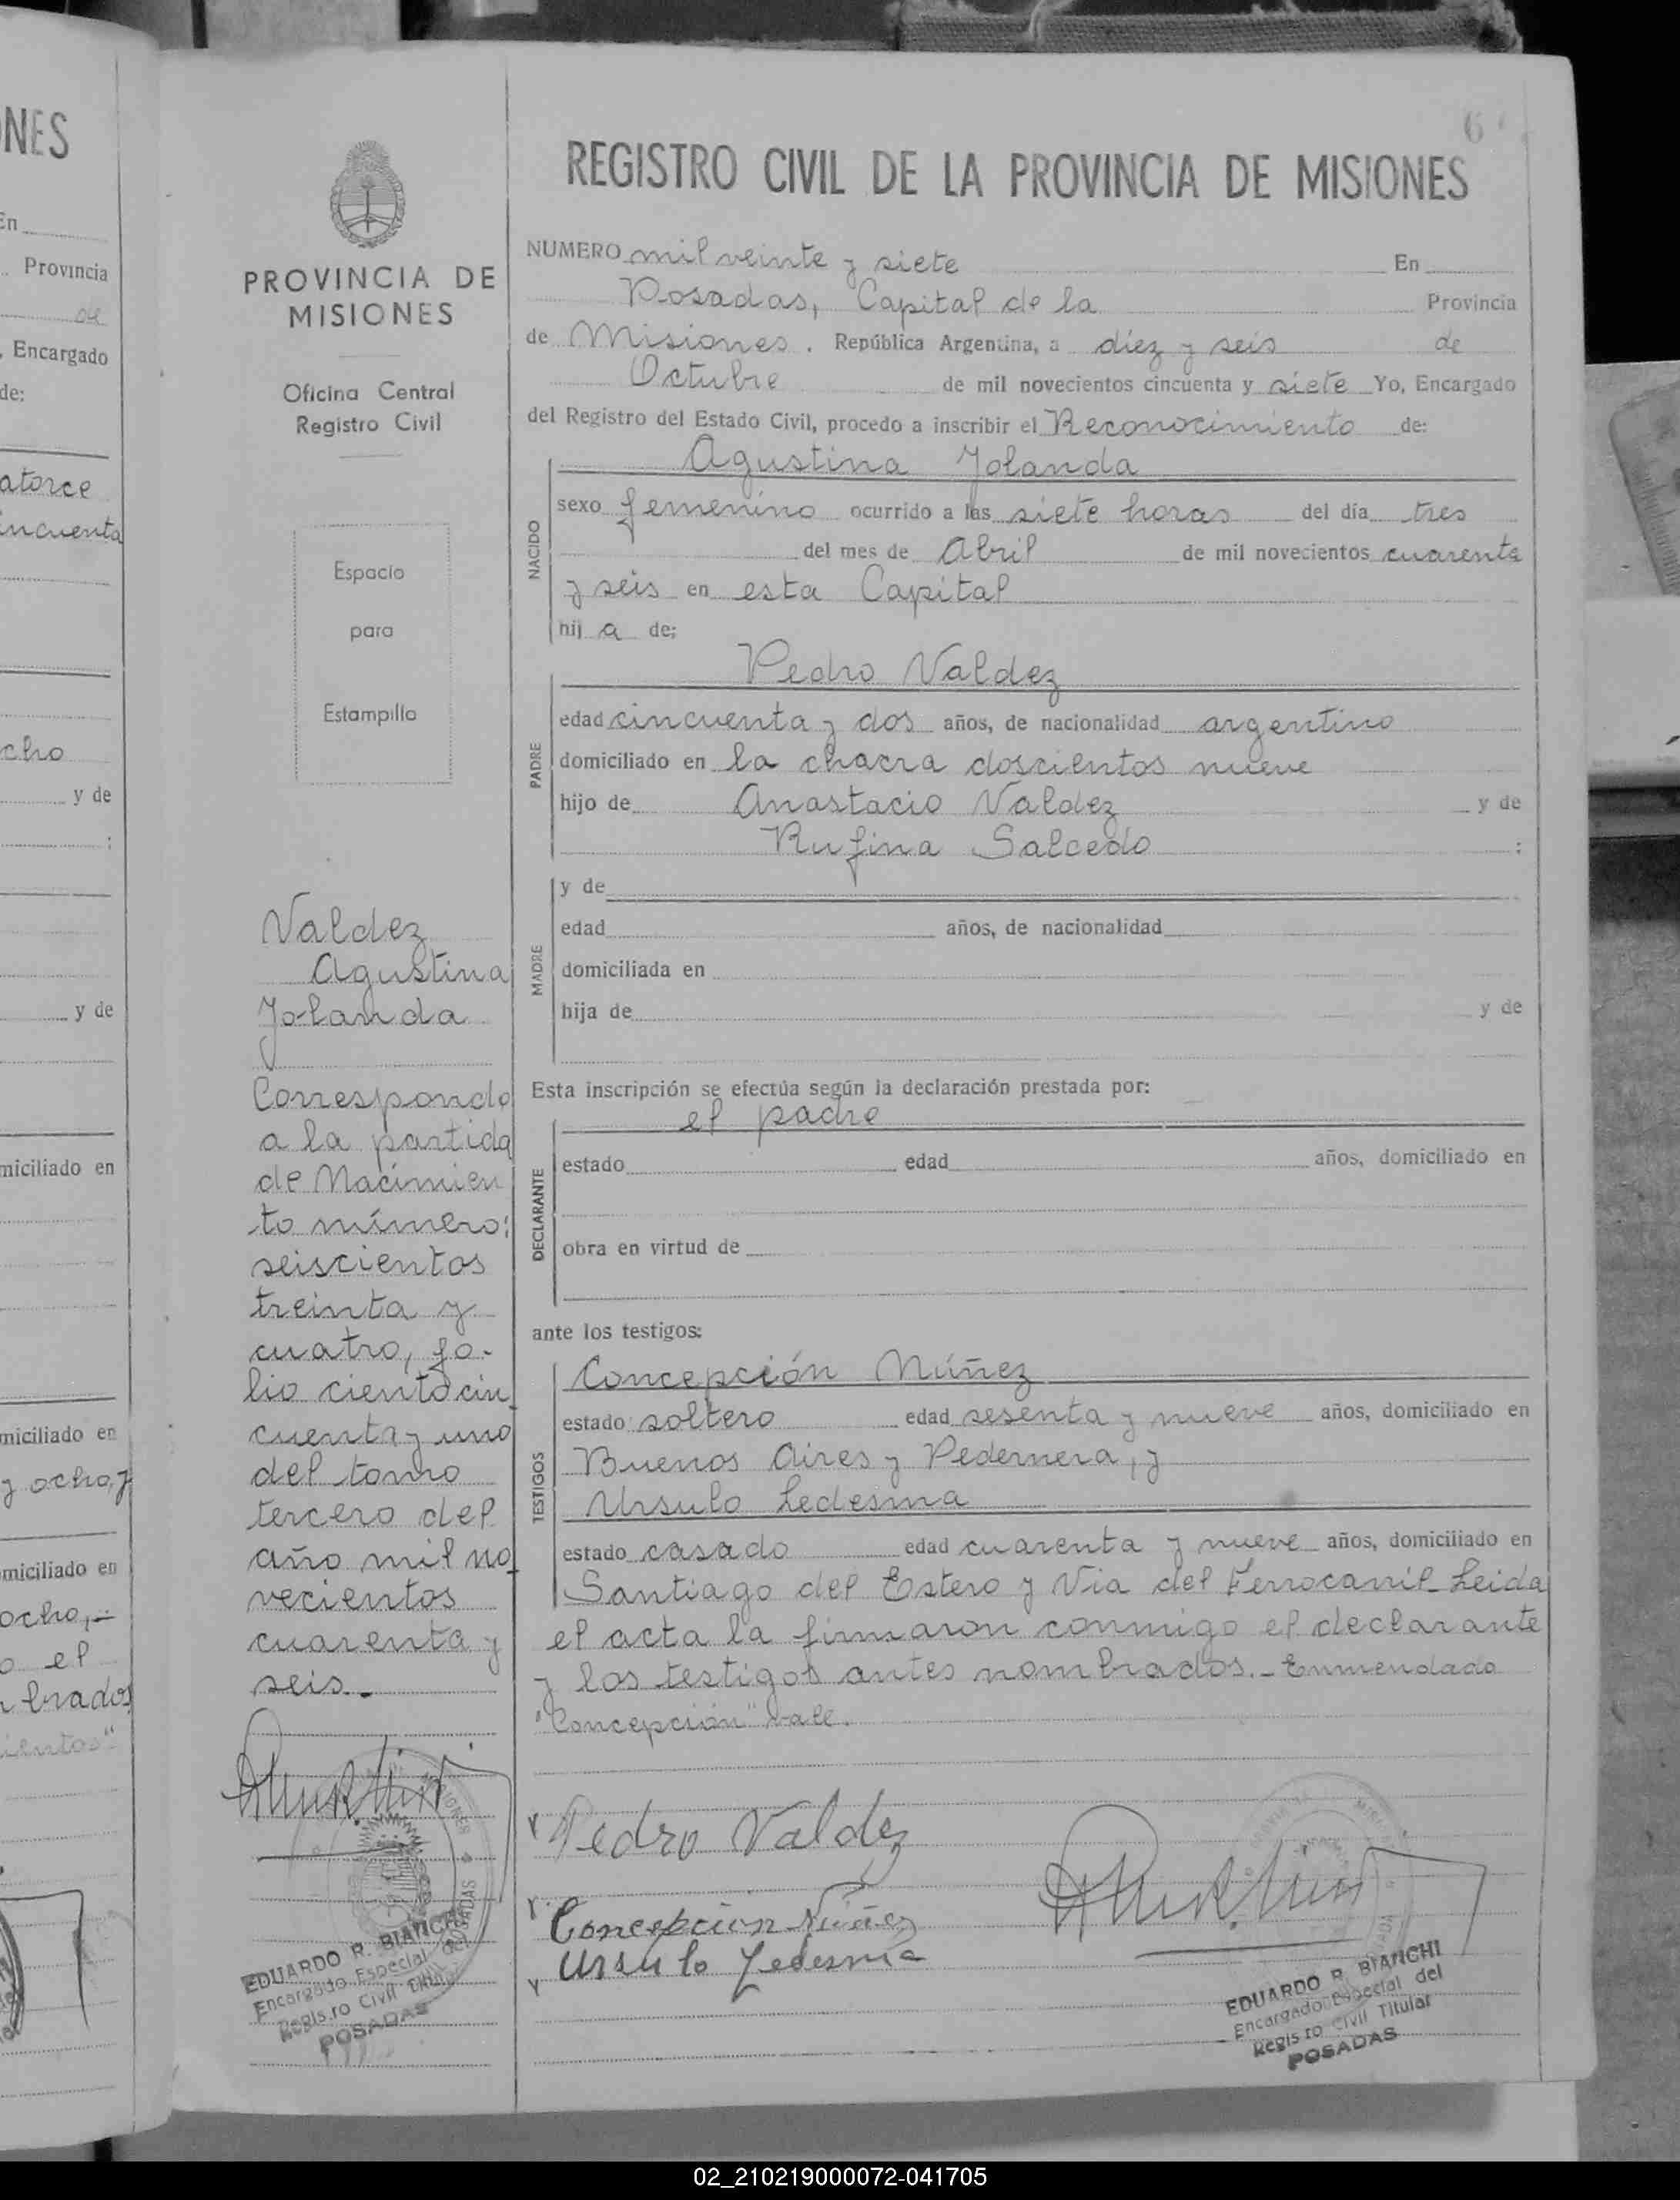 NES
En
Provincia
de
, Encargado
de:
atorce
incuenta
cho
y de
:
y de
miciliado en
miciliado en
y ocho, y
miciliado en
ocho,
o el
brados
ientos"
PROVINCIA DE
MISIONES
Oficina Central
Registro Civil
Espacio
para
Estampilla
Valdez
Agustina
Yolanda
Corresponde
a la partida
de Nacimien
to número:
seiscientos
treinta y
cuatro, fo-
lio ciento cin
cuenta y uno
del tomo
tercero del
año mil no
vecientos
cuarenta y
seis.-
EDUARDO R. BIANCHI
Encargado Especial del
Regis.ro Civil Titular
POSADAS
6
REGISTRO CIVIL DE LA PROVINCIA DE MISIONES
NUMERO mil veinte y siete En
Posadas, Capital de la Provincia
de Misiones. República Argentina, a diez y seis de
Octubre de mil novecientos cincuenta y siete Yo, Encargado
del Registro del Estado Civil, procedo a inscribir el Reconocimiento de:
Agustina Yolanda
NACIDO
sexo femenino ocurrido a las siete horas del día tres
del mes de Abril de mil novecientos cuarenta
y seis en esta Capital
hij a de:
Pedro Valdez
PADRE
edad cincuenta y dos años, de nacionalidad argentino
domiciliado en la chacra doscientos nueve
hijo de Anastacio Valdez y de
Rufina Salcedo ;
MADRE
y de
edad años, de nacionalidad
domiciliada en
hija de y de
Esta inscripción se efectúa según la declaración prestada por:
el padre
DECLARANTE
estado edad años, domiciliado en
obra en virtud de
ante los testigos:
TESTIGOS
Concepción Núñez
estado soltero edad sesenta y nueve años, domiciliado en
Buenos Aires y Pedernera, y
Ursulo Ledesma
estado casado edad cuarenta y nueve años, domiciliado en
Santiago del Estero y Via del Ferrocarril. Leida
el acta la firmaron conmigo el declarante
y los testigos antes nombrados.- Enmendado
"Concepción" vale.
Pedro Valdez
Concepcion Núñez
Ursulo Ledesma
EDUARDO R. BIANCHI
Encargado Especial del
Regis.ro Civil Titular
POSADAS
02_210219000072-041705